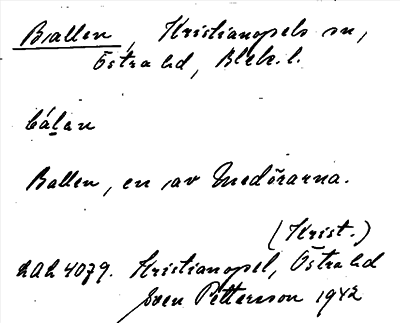 Ballen, Kristianopels sn,
Östra hd, Blek. l.
bálan
Ballen, en av Medörarna.
(Krist.)
LAL 4079. Kristianopel, Östra hd
Sven Pettersson 1942